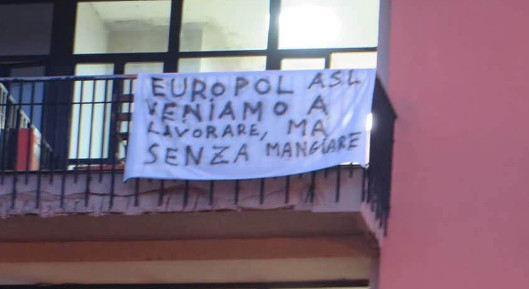 EUROPOL A.S.L
VENIAMO A
LAVORARE, MA
SENZA MANGIARE